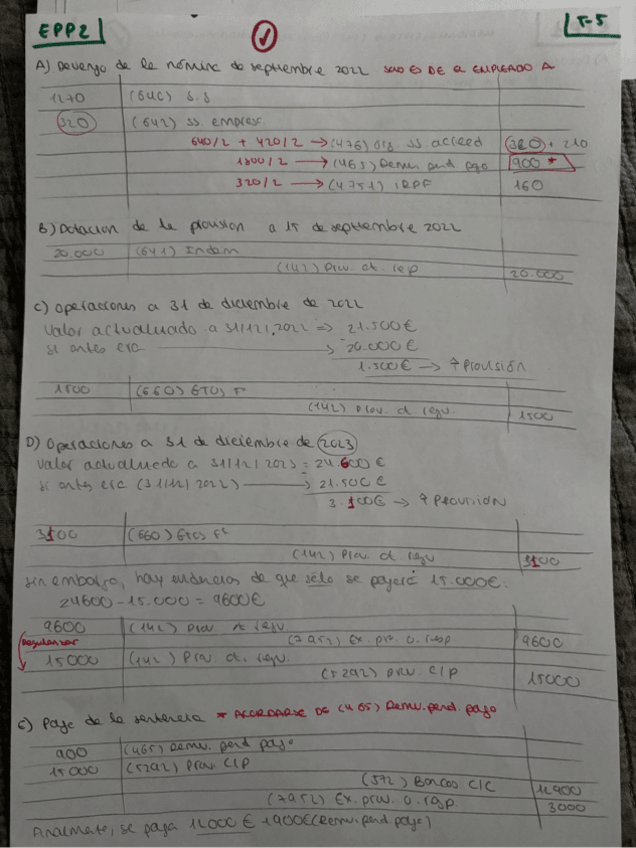 EPP2
T-5
A) Devengo de la nómina de septiembre 2022 SOLO ES DE EL EMPLEADO A
1270 (640) S.S
320 (642) ss. empresa
640/2 + 420/2 → (476) org. ss. acreed 320 + 210
1800/2 → (465) Remu. pend pago 900 *
320/2 → (4751) IRPF 160
B) Dotación de la provisión a 15 de septiembre 2022
20.000 (641) Indem
(142) Prov. ot. resp 20.000
C) Operaciones a 31 de diciembre de 2022
Valor actualizado a 31/12/2022 => 21.500€
si antes era → 20.000€
1.500€ → ↑ Provisión
1500 (660) Gtos F
(142) Prov. ot. resp. 1500
D) Operaciones a 31 de diciembre de 2023
Valor actualizado a 31/12/2023 = 24.600€
si antes era (31/12/2022) → 21.500€
3.100€ → ↑ Provisión
3100 (660) Gtos Fº
(142) Prov. ot. resp 3100
sin embargo, hay evidencias de que sólo se pagará 15.000€.
24600 - 15.000 = 9600€
9600 (142) Prov ot resp.
(7952) Ex. pro. o. resp 9600
Regularizar
15000 (142) Prov. ot. resp.
(5292) prov. C/P 15000
E) Pago de la sentencia * ACORDARSE DE (465) Remu. pend. pago
900 (465) Remu. pend pago
15000 (5292) Prov C/P
(572) Bancos C/C 12900
(7952) Ex. prov. o. resp. 3000
Finalmente, se paga 12000€ + 900€ (Remu. pend. pago)